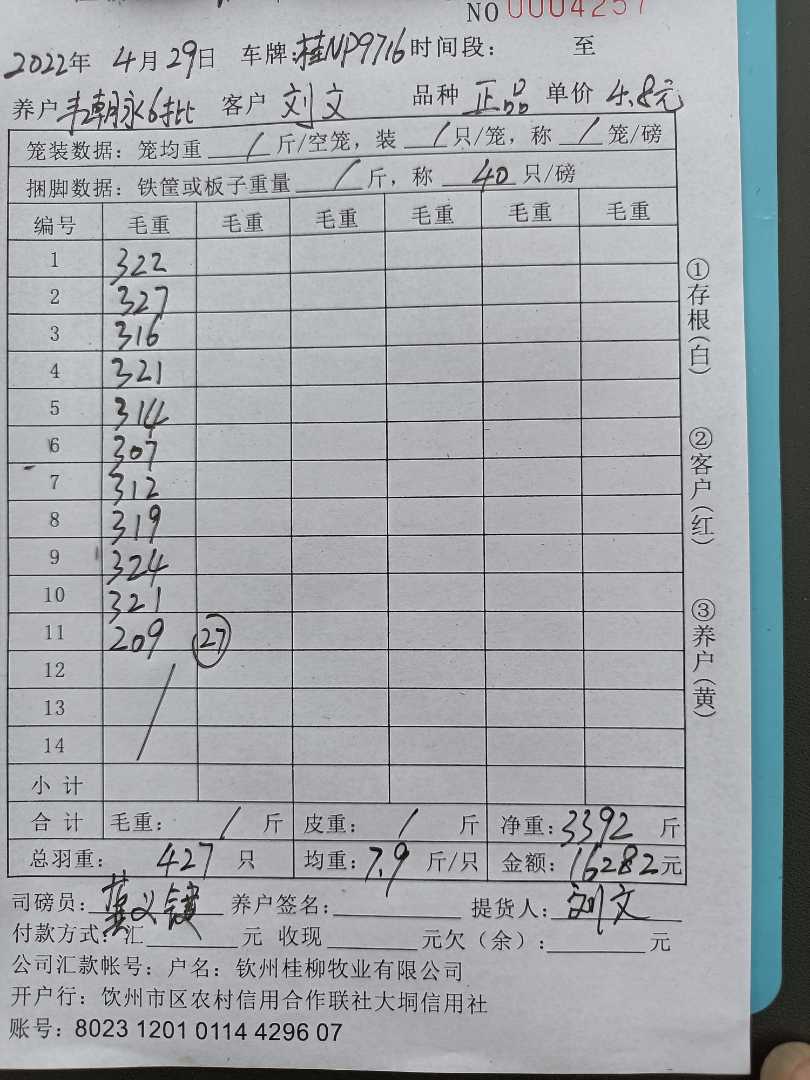 NO 0004257
2022年 4月29日 车牌:桂NP9716 时间段: 至
养户 韦朝永6批 客户 刘文 品种 正品 单价 4.8元
笼装数据：笼均重 / 斤/空笼，装 / 只/笼，称 / 笼/磅
捆脚数据：铁筐或板子重量 / 斤，称 40 只/磅
编号 毛重 毛重 毛重 毛重 毛重 毛重
1 322
2 327
3 316
4 321
5 314
6 307
7 312
8 319
9 324
10 321
11 209 27
12
13
14
小计
合计 毛重： / 斤 皮重： / 斤 净重：3392 斤
总羽重： 427 只 均重：7.9 斤/只 金额：16282元
司磅员: 养户签名: 提货人: 刘文
付款方式: 汇 元 收现 元欠（余）: 元
公司汇款帐号：户名：钦州桂柳牧业有限公司
开户行：饮州市区农村信用合作联社大垌信用社
账号：8023 1201 0114 4296 07
①存根(白)
②客户(红)
③养户(黄)